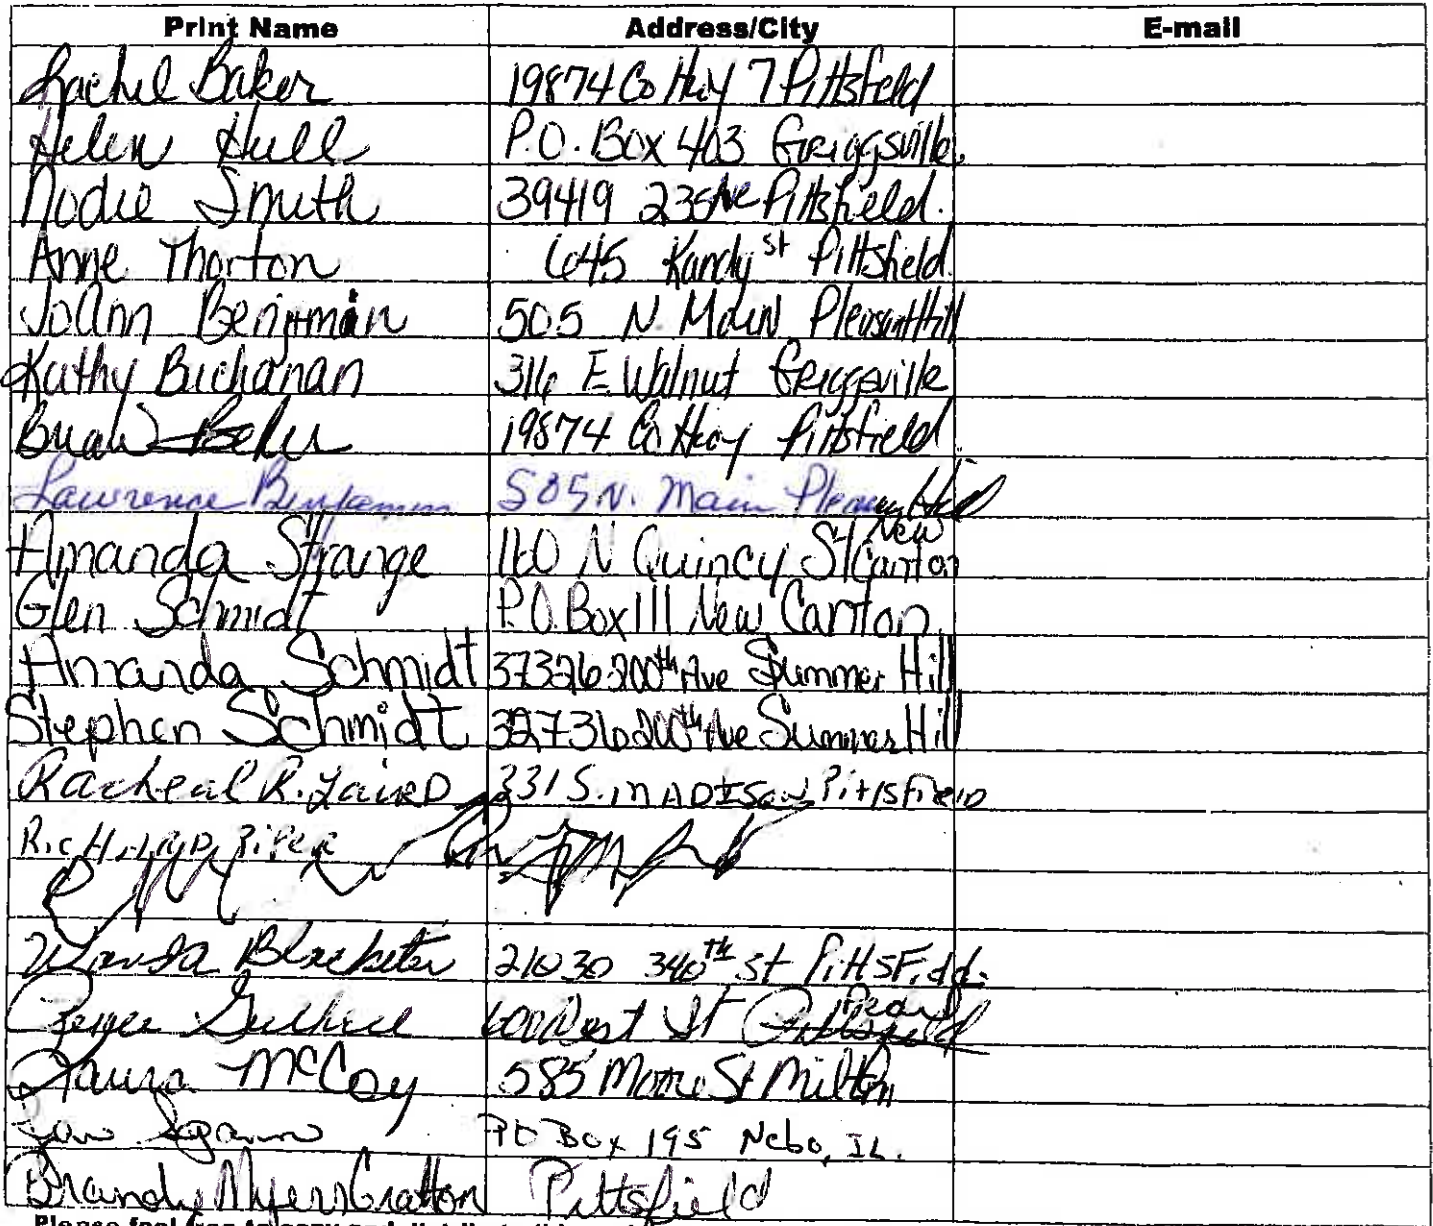 Print Name Address/City E-mail
Rachel Baker 19874 Co Hwy 7 Pittsfield
Helen Hull P.O. Box 403 Griggsville.
Nodie Smith 39419 235 Ave Pittsfield.
Anne Thorton 645 Kandy St Pittsfield
JoAnn Benjamin 505 N Main Pleasant Hill
Kathy Buchanan 316 E Walnut Griggsville
Brian Baker 19874 Co Hwy Pittsfield
Lawrence Benjamin 505 N. Main Pleasant Hill
Amanda Strange 160 N Quincy St New Canton
Glen Schmidt P.O. Box 111 New Canton
Amanda Schmidt 37326 200th Ave Summer Hill
Stephen Schmidt 200th Ave Summer Hill
Racheal R. Laird 331 S. MADISON Pittsfield
RICHARD Piper
Wanda Blacketer 21030 340th St Pittsfield.
600 West St Pearl
Laura McCoy 585 Moore St Milton
PO Box 195 Nebo, IL.
Brandy Myers Gratton Pittsfield
Please feel free to copy and distribute this